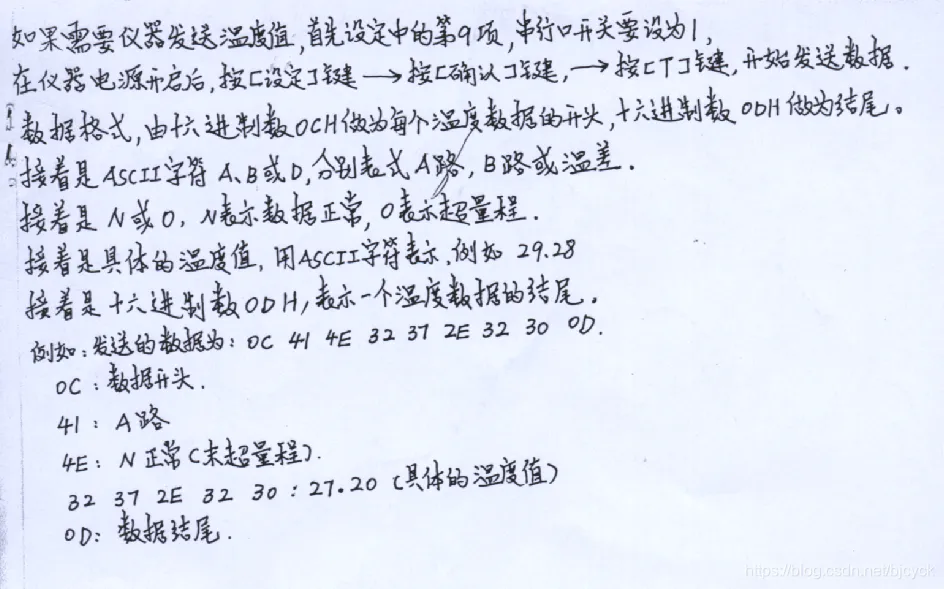 如果需要仪器发送温度值,首先设定中的第9项,串行口开关要设为1,
在仪器电源开启后,按[设定]键→按[确认]键,→按[T]键,开始发送数据.
数据格式,由十六进制数0CH做为每个温度数据的开头,十六进制数0DH做为结尾。
接着是ASCII字符A、B或D,分别表式A路,B路或温差.
接着是N或O,N表示数据正常,O表示超量程.
接着是具体的温度值,用ASCII字符表示,例如 29.28
接着是十六进制数0DH,表示一个温度数据的结尾.
例如:发送的数据为:0C 41 4E 32 37 2E 32 30 0D.
0C:数据开头.
41:A路
4E:N正常(未超量程).
32 37 2E 32 30:27.20(具体的温度值)
0D:数据结尾.
https://blog.csdn.net/bjcyck